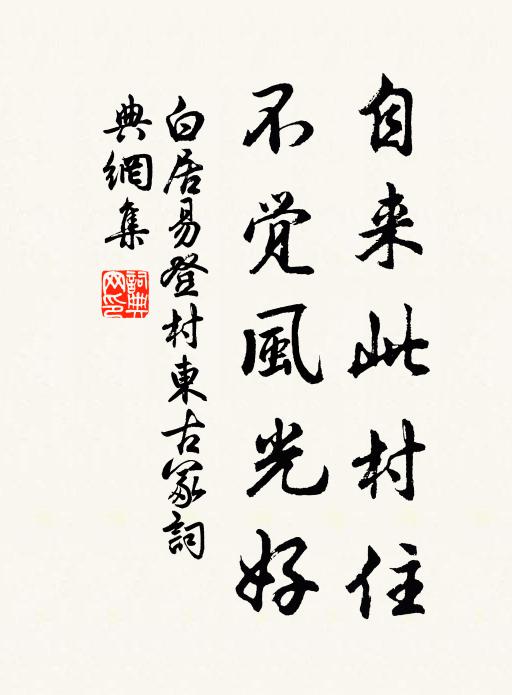 自来此村住
不覚風光好
白居易登村東古冢詞
典網集
詞典
网印